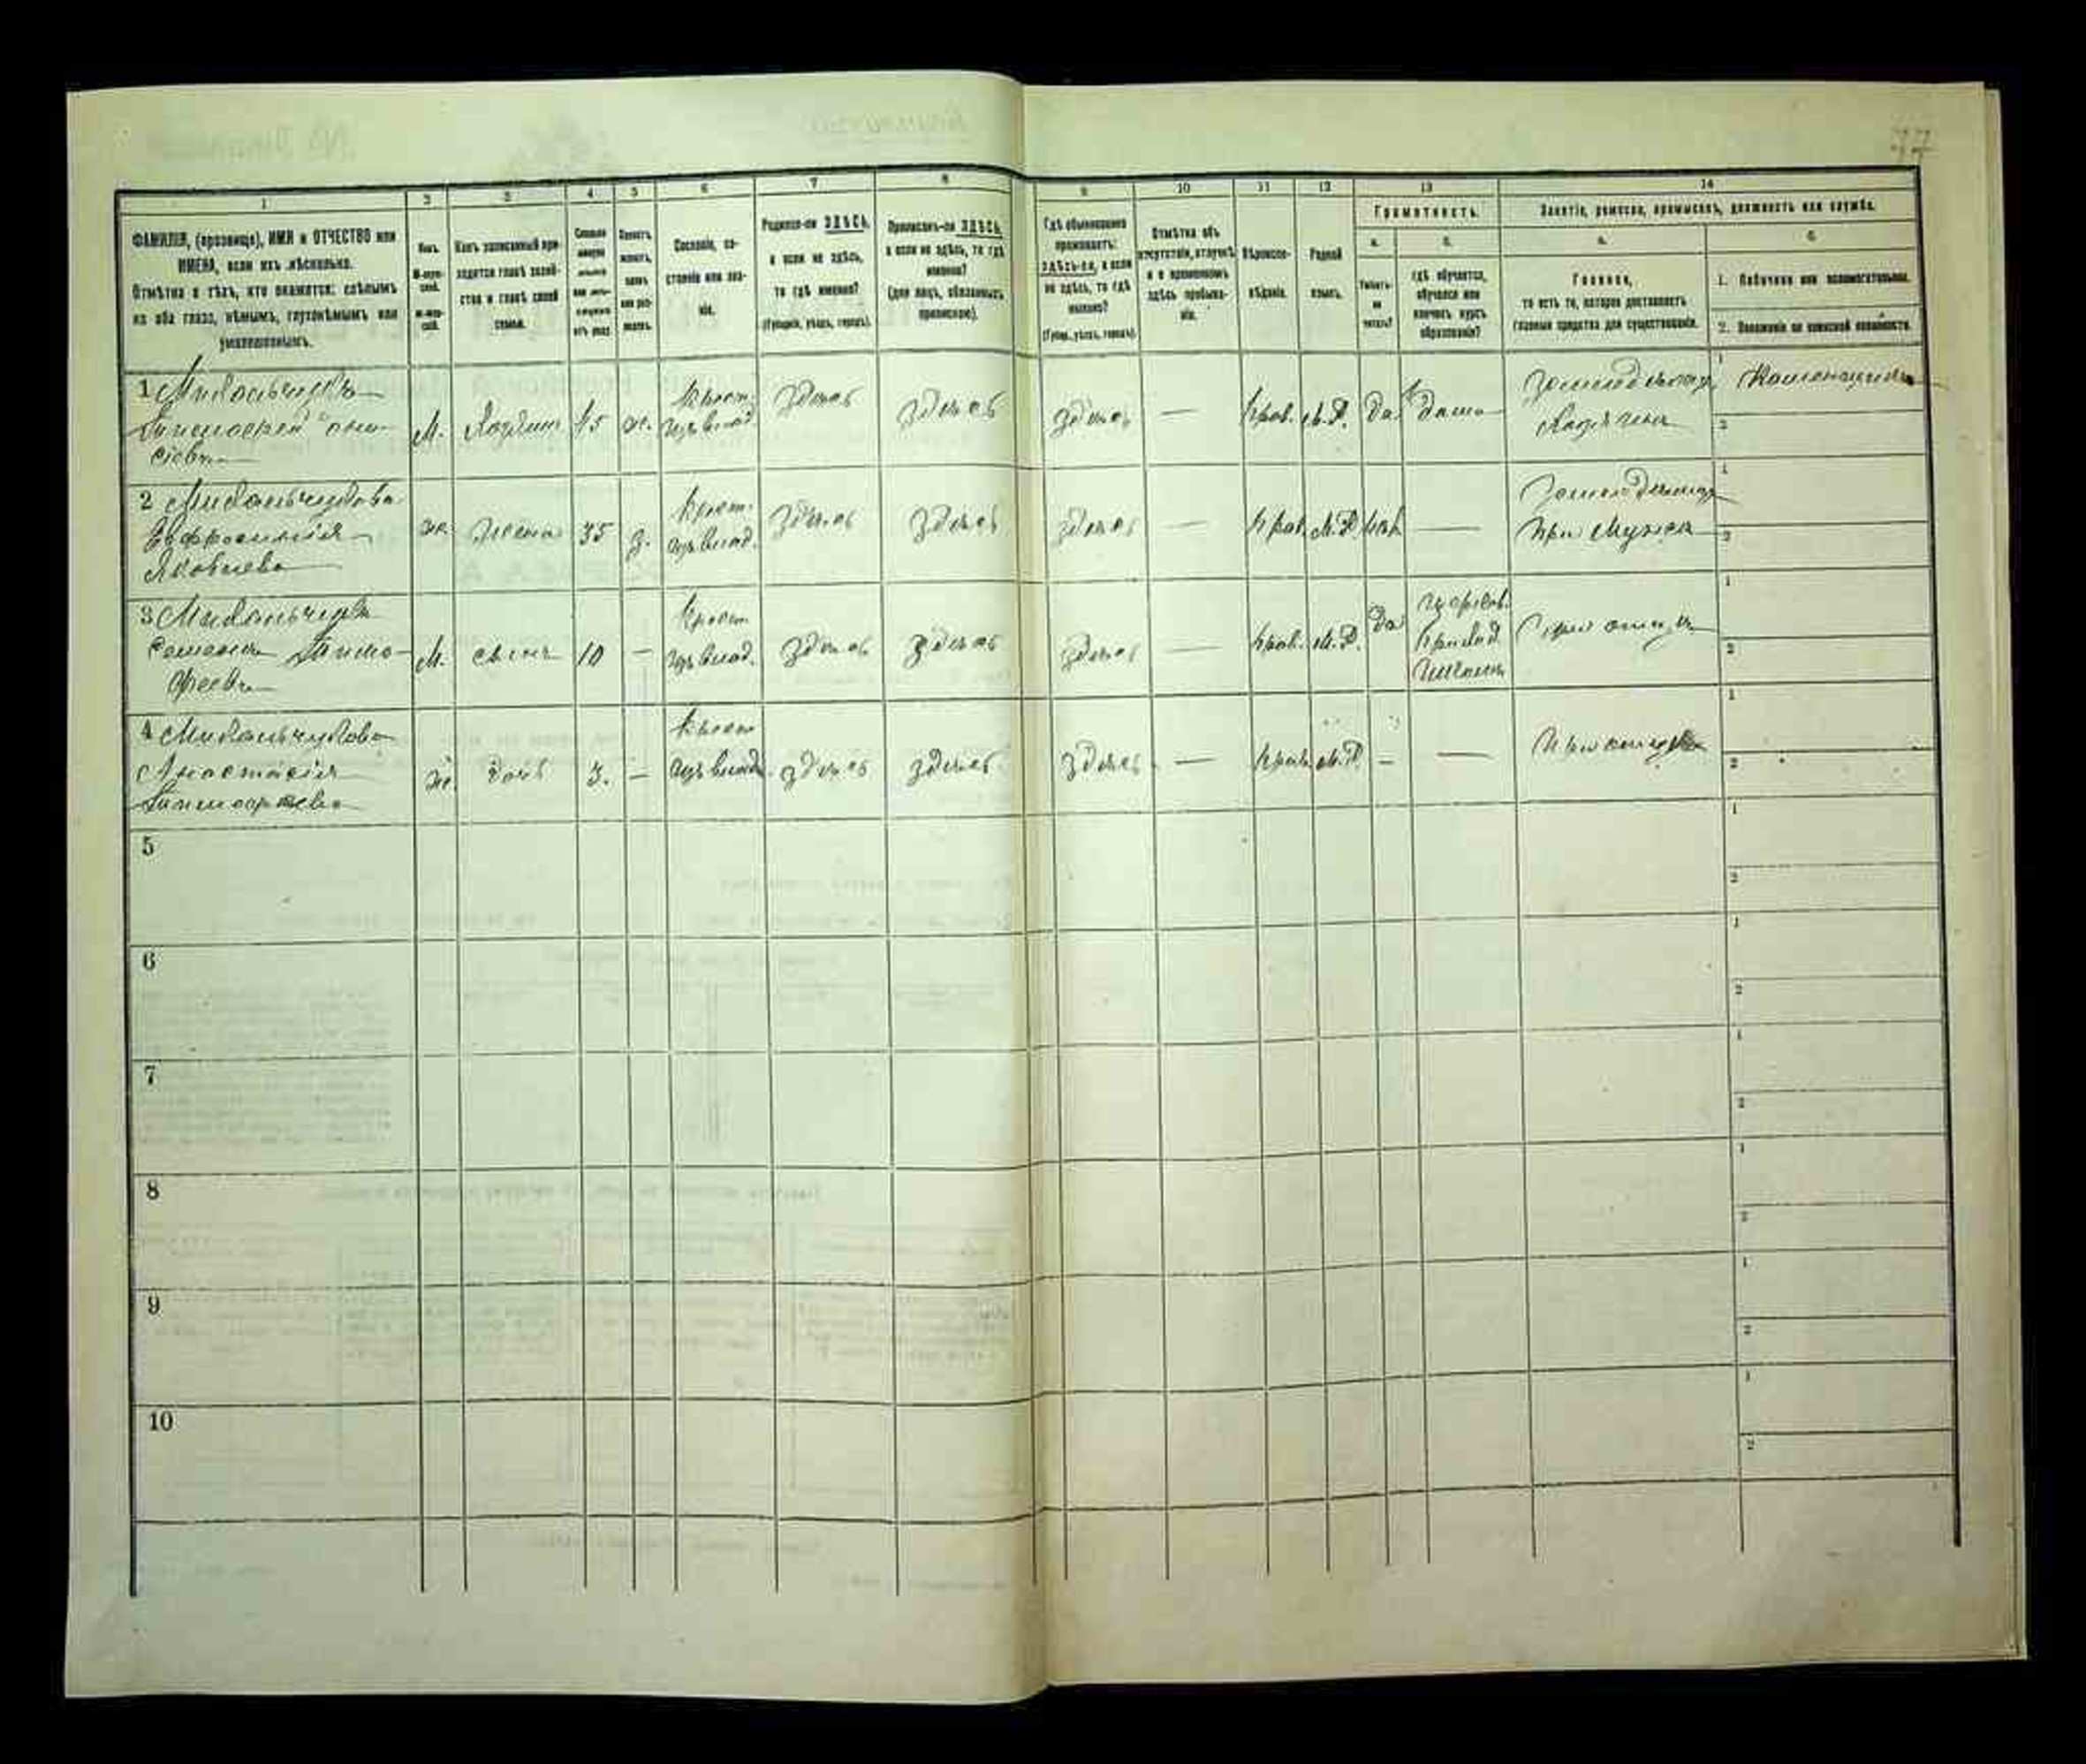 77
1 2 3 4 5 6 7 8 9 10 11 12 13 14
ФАМИЛІЯ, (прозвище), ИМЯ и ОТЧЕСТВО или
ИМЕНА, если ихъ нѣсколько.
Отмѣтка о тѣхъ, кто окажется: слѣпымъ
на оба глаза, нѣмымъ, глухонѣмымъ или
умалишеннымъ.
Полъ.
М-муж-
ской.
Ж-жен-
скій.
Какъ записанный при-
ходится главѣ хозяй-
ства и главѣ своей
семьи.
Сколько
минуло
лѣтъ
отъ роду.
Холостъ,
женатъ,
вдовъ
или раз-
веденъ.
Сословіе, со-
стояніе или зва-
ніе.
Родился-ли ЗДѢСЬ,
а если не здѣсь,
то гдѣ именно?
(Губернія, уѣздъ, городъ).
Приписанъ-ли ЗДѢСЬ,
а если не здѣсь, то гдѣ
именно?
(для лицъ, обязанныхъ
припискою).
Гдѣ обыкновенно
проживаетъ:
ЗДѢСЬ-ли, а если
не здѣсь, то гдѣ
именно?
(Губер., уѣздъ, городъ).
Отмѣтка объ
отсутствіи, отлучкѣ
и о временномъ
здѣсь пребыва-
ніи.
Вѣроиспо-
вѣданіе.
Родной
языкъ.
Грамотность.
а. б.
Умѣетъ-
ли
читать?
Гдѣ обучается,
обучался или
кончилъ курсъ
образованія?
Занятіе, ремесло, промыселъ, должность или служба.
а. б.
Главное,
то есть то, которое доставляетъ
главныя средства для существованія.
1. Побочное или вспомогательное.
2. Положеніе по воинской повинности.
1 Михальчукъ
М. Хозяинъ 45 ж. Крест. изъ влад. здѣсь здѣсь здѣсь — прав. М.Р. да дома
Хозяинъ
1
2
2 Михальчукова
Евфросинія
Яковлева
ж. жена 35 з. Крест. изъ влад. здѣсь здѣсь здѣсь — прав. М.Р. нѣт —
при мужѣ
1
2
3 Михальчукъ
Семенъ Тимо-
феевъ
М. сынъ 10 — Крест. изъ влад. здѣсь здѣсь здѣсь — прав. М.Р. да церков. приход. школѣ
при отцѣ
1
2
4 Михальчукова
Анастасія
Тимофеева
ж. дочь 3. — Крест. изъ влад. здѣсь здѣсь здѣсь — прав. М.Р. — —
при отцѣ
1
2
5
1
2
6
1
2
7
1
2
8
1
2
9
1
2
10
1
2